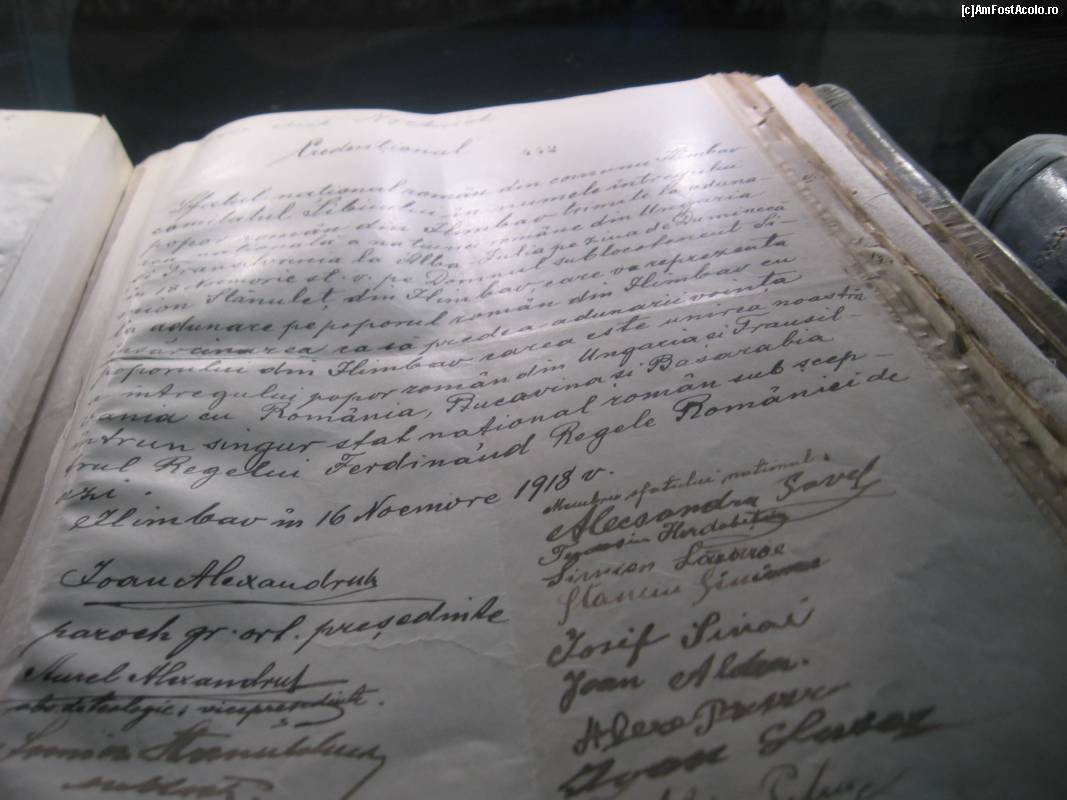 [c]AmFostAcolo.ro
Credențional 442
Sfatul național român din comuna Ilimbav
comitatul Sibiului în numele întregului
popor român din Ilimbav trimite la aduna-
națională a națiunei române din Ungaria
și Transilvania la Alba Iulia pe ziua de Dumineca
în 18 Noemvrie st. v. pe Domnul sublocotenent Si-
mion Stanuleț din Ilimbav care va reprezenta
la adunare pe poporul român din Ilimbav cu
însărcinarea ca să predea adunarii voința
poporului din Ilimbav carea este unirea noastră
a intregului popor român din Ungaria si Transil-
vania cu România, Bucavina si Basarabia
intrun singur stat național român sub scep-
trul Regelui Ferdinand Regele României de
azi.
Ilimbav în 16 Noemvre 1918 v.
Membrii sfatului national:
Alecsandru Savel
Simion Lazaroe
Stanciu
Iosif Sinai
Joan Aldea.
Alexa
Ioan
Ioan Alexandrut
paroch gr. ort. președinte
Aurel Alexandrut
abs. de teologie; vicepresedinte.
Simion